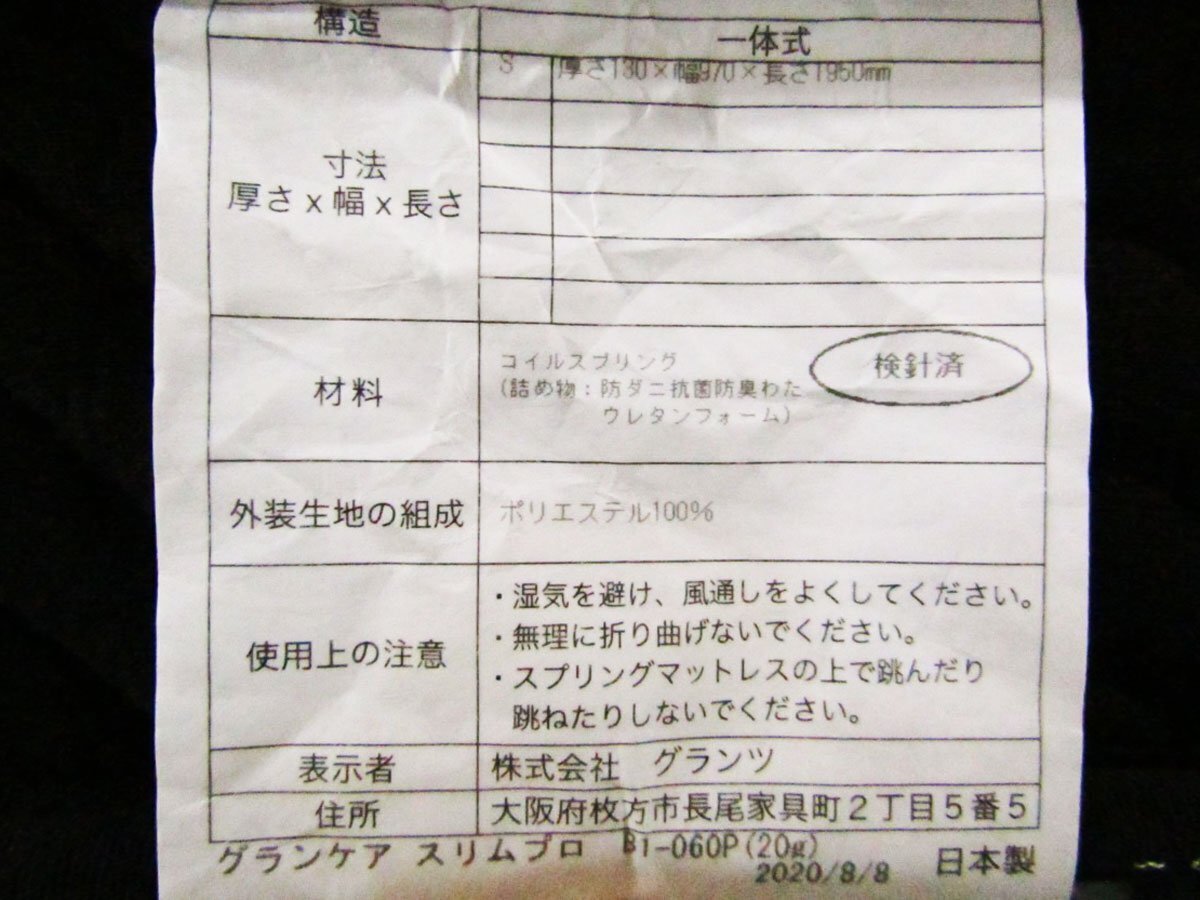 構造 一体式
S 厚さ130×幅970×長さ1950mm
寸法
厚さx幅x長さ
材料
コイルスプリング
(詰め物：防ダニ抗菌防臭わた
ウレタンフォーム)
検針済
外装生地の組成 ポリエステル100%
使用上の注意
・湿気を避け、風通しをよくしてください。
・無理に折り曲げないでください。
・スプリングマットレスの上で跳んだり
跳ねたりしないでください。
表示者 株式会社 グランツ
住所 大阪府枚方市長尾家具町２丁目５番５
グランケア スリムプロ B1-060P(20g)
2020/8/8 日本製